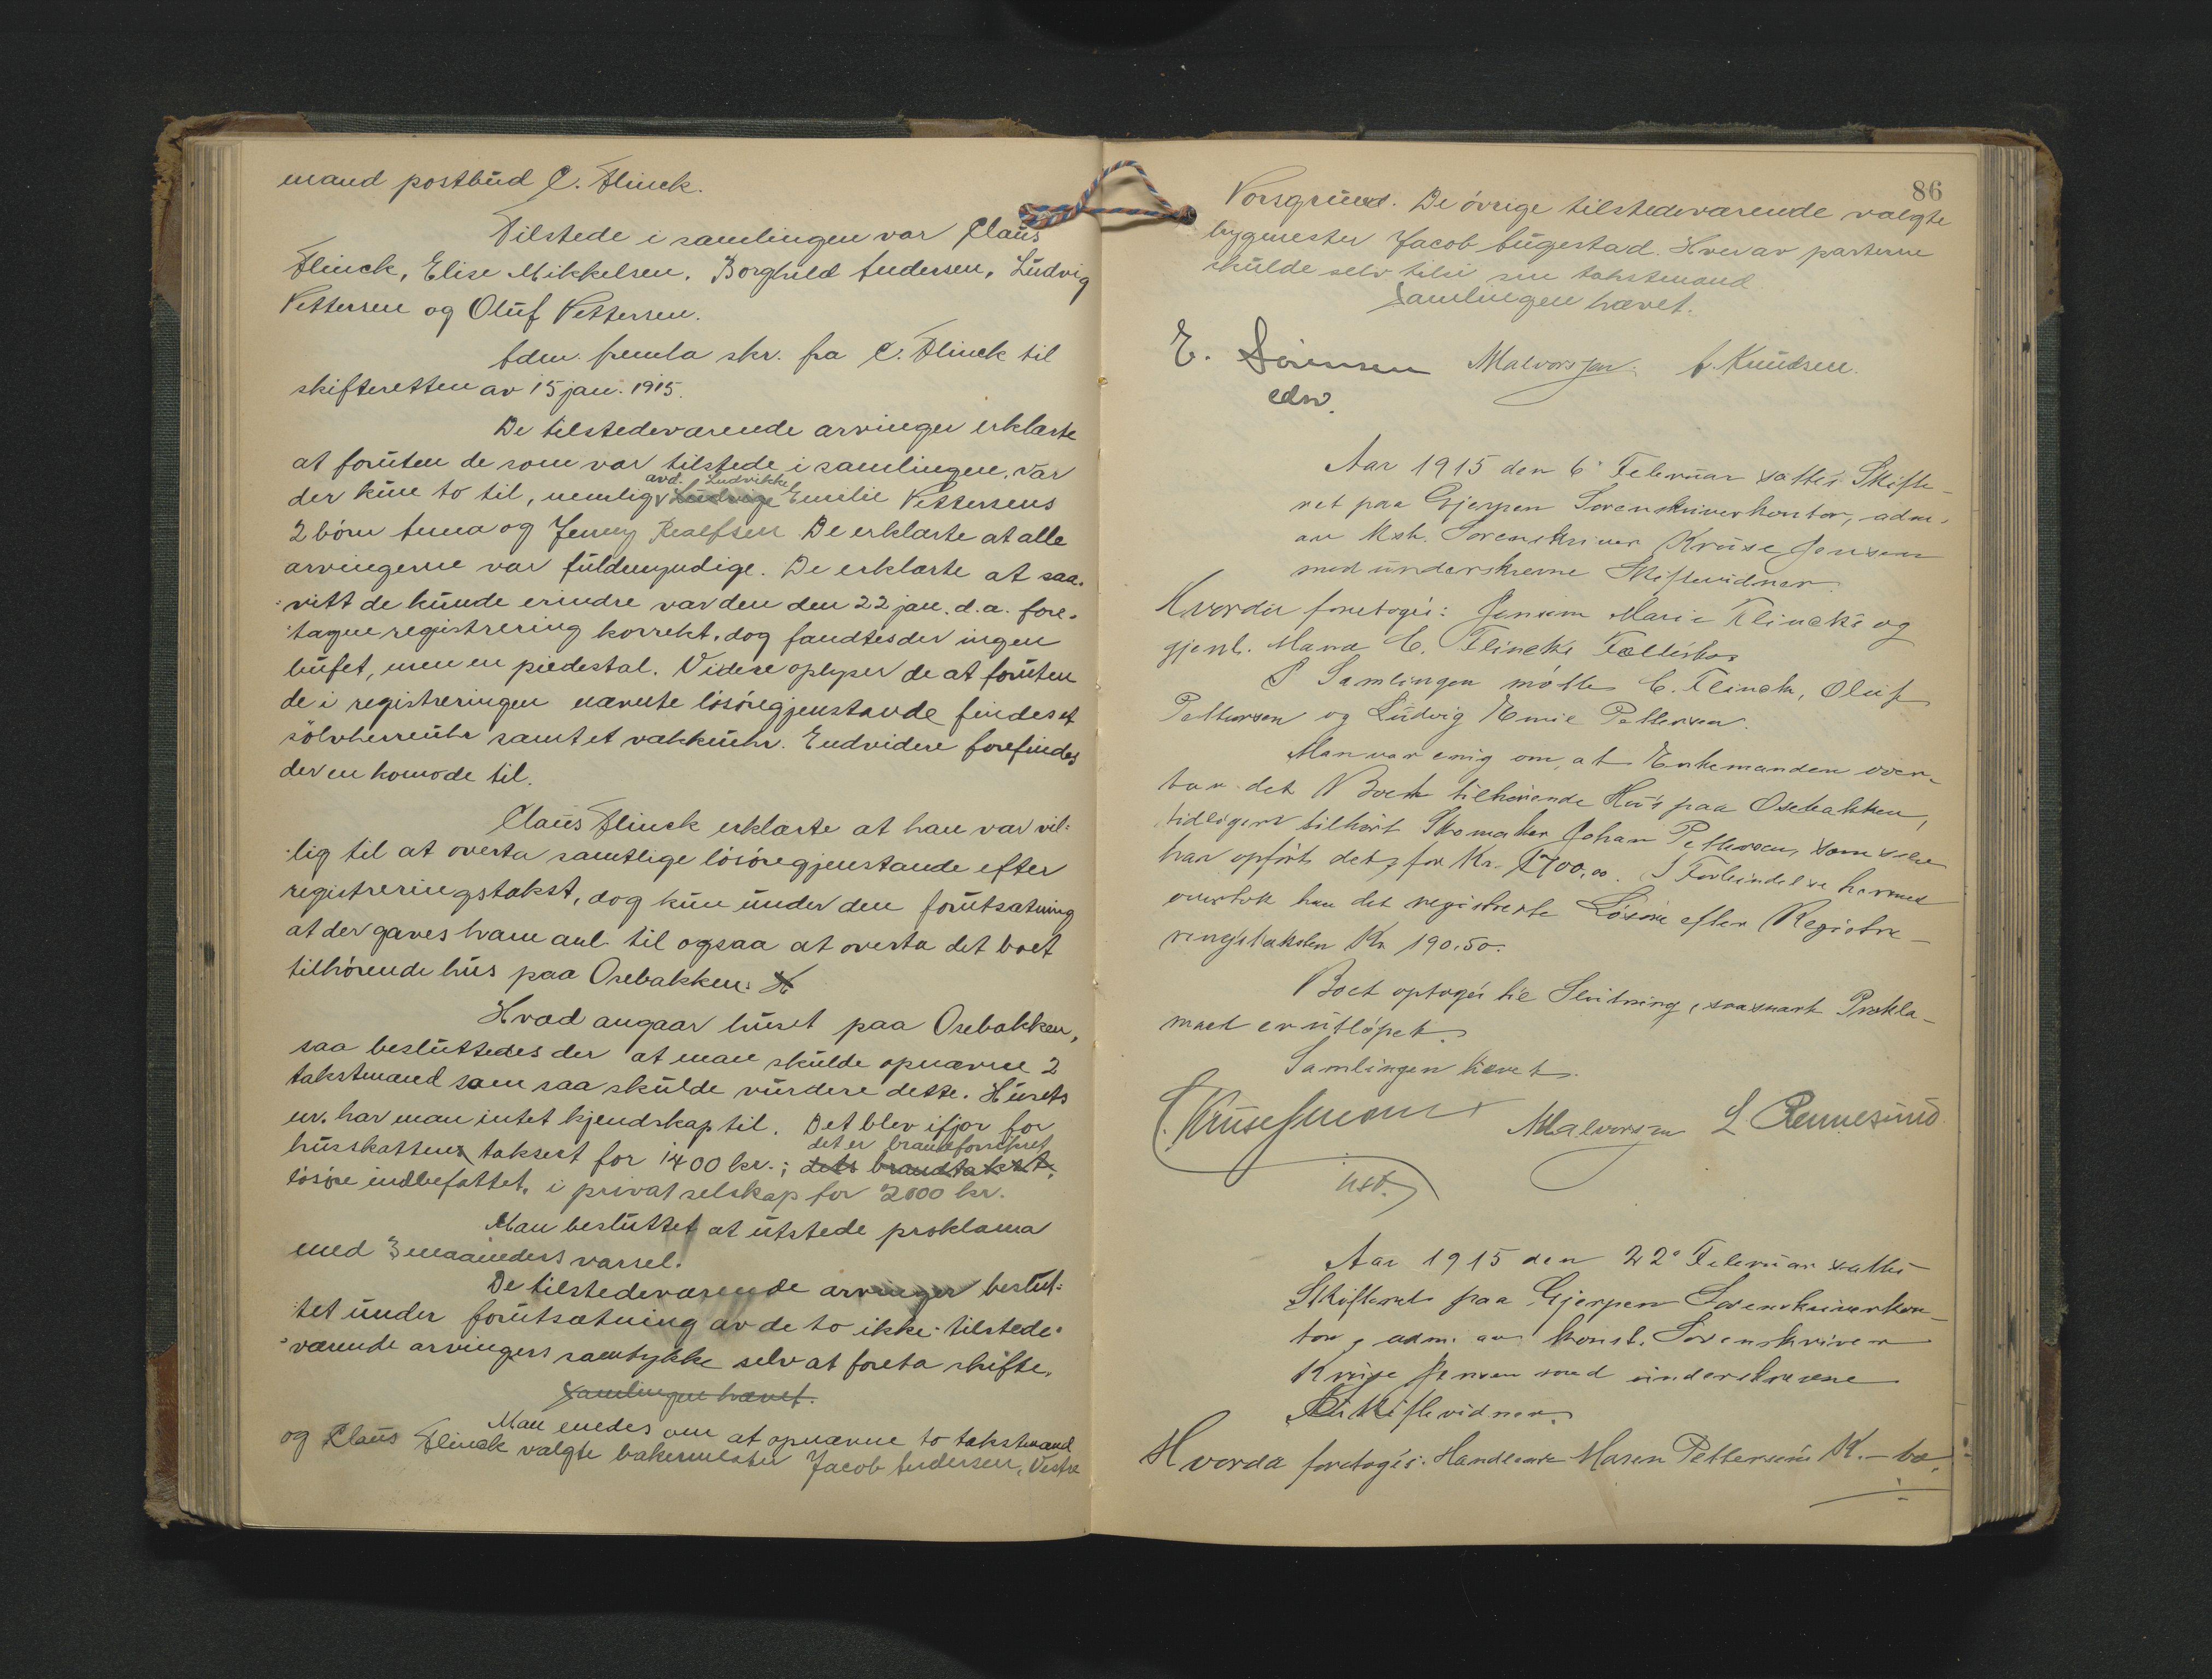 mand postbud C. Flinck.
Tilstede i samlingen var Claus
Flinck, Elise Mikkelsen, Borghild Andersen, Ludvig
Pettersen og Oluf Pettersen.
Adm. fremla skr. fra C. Flinck til
skifteretten av 15 jan. 1915.
De tilstedeværende arvinger erklærte
at foruten de som var tilstede i samlingen, var
avd. Ludvikke
der kun to til, nemlig Ludvige Emilie Pettersens
2 børn Anna og Jenny Realfsen De erklærte at alle
arvingerne var fuldmyndige. De erklærte at saa-
vitt de kunde erindre var den den 22 jan. d.a. fore-
tagne registrering korrekt, dog fandtes der ingen
bufet, men en piedestal. Videre oplyser de at foruten
de i registreringen nævnte løsøregjenstande findes et
sølvherreuhr samt et vækkeuhr. Endvidere forefindes
der en komode til.
Claus Flinck erklærte at han var vil-
lig til at overta samtlige løsøregjenstande efter
registreringstakst, dog kun under den forutsætning
at der gaves ham anl. til ogsaa at overta det boet
tilhørende hus paa Osebakken.
Hvad angaar huset paa Osebakken,
saa besluttedes der at man skulde opnævne 2
takstmænd som saa skulde vurdere dette. Husets
nr. har man intet kjendskap til. Det blev ifjor for
det er brandforsikret
husskatten taksert for 1400 kr.; dets brandtakst,
løsøre indbefattet, i privat selskap for 2000 kr.
Man besluttet at utstede proklama
med 3 maaneders varsel.
De tilstedeværende arvinger beslut-
tet under forutsætning av de to ikke tilstede-
værende arvingers samtykke selv at foreta skifte.
Samlingen hævet.
Man enedes om at opnævne to takstmænd
og Claus Flinck valgte bakermester Jacob Andersen, Vestre
86
Porsgrund. De øvrige tilstedeværende valgte
bygmester Jacob Bugestad. Hver av parterne
skulde selv tilsi sin takstmand
Samlingen hævet.
E. Sørensen Malvorsen. A. Knudsen.
edw.
Aar 1915 den 6' Februar sattes Skifte-
ret paa Gjerpen Sorenskriverkontor, adm.
av Kst. Sorenskriver Kruse Jensen
med underskrevne Skiftevidner.
Hvorda foretoges: Jensine Marie Flincks og
gjenl. Mand C. Flincks Fællesbo.
I Samlingen møtte C. Flinck, Oluf
Pettersen og Ludvig Emil Pettersen.
Man var enig om, at Enkemanden over-
tar det Boet tilhørende Hus paa Osebakken,
tidligere tilhørt Skomaker Johan Pettersen, som selv
har opført det, for Kr. 1700,00. I Forbindelse hermed
overtok han det registrerte Løsøre efter Registre-
ringstaksten Kr 190.50.
Boet optoges til Slutning, saasnart Prokla-
maet er utløpet.
Samlingen hævet.
Kruse Jensen Malvorsen L Rennesund
kst.
Aar 1915 den 22' Februar sattes
Skifteret paa Gjerpen Sorenskriverkon-
tor, adm. av konst. Sorenskriver
Kruse Jensen med underskrevne
Skiftevidner.
Hvorda foretoges: Handlende Maren Pettersens K.-bo.